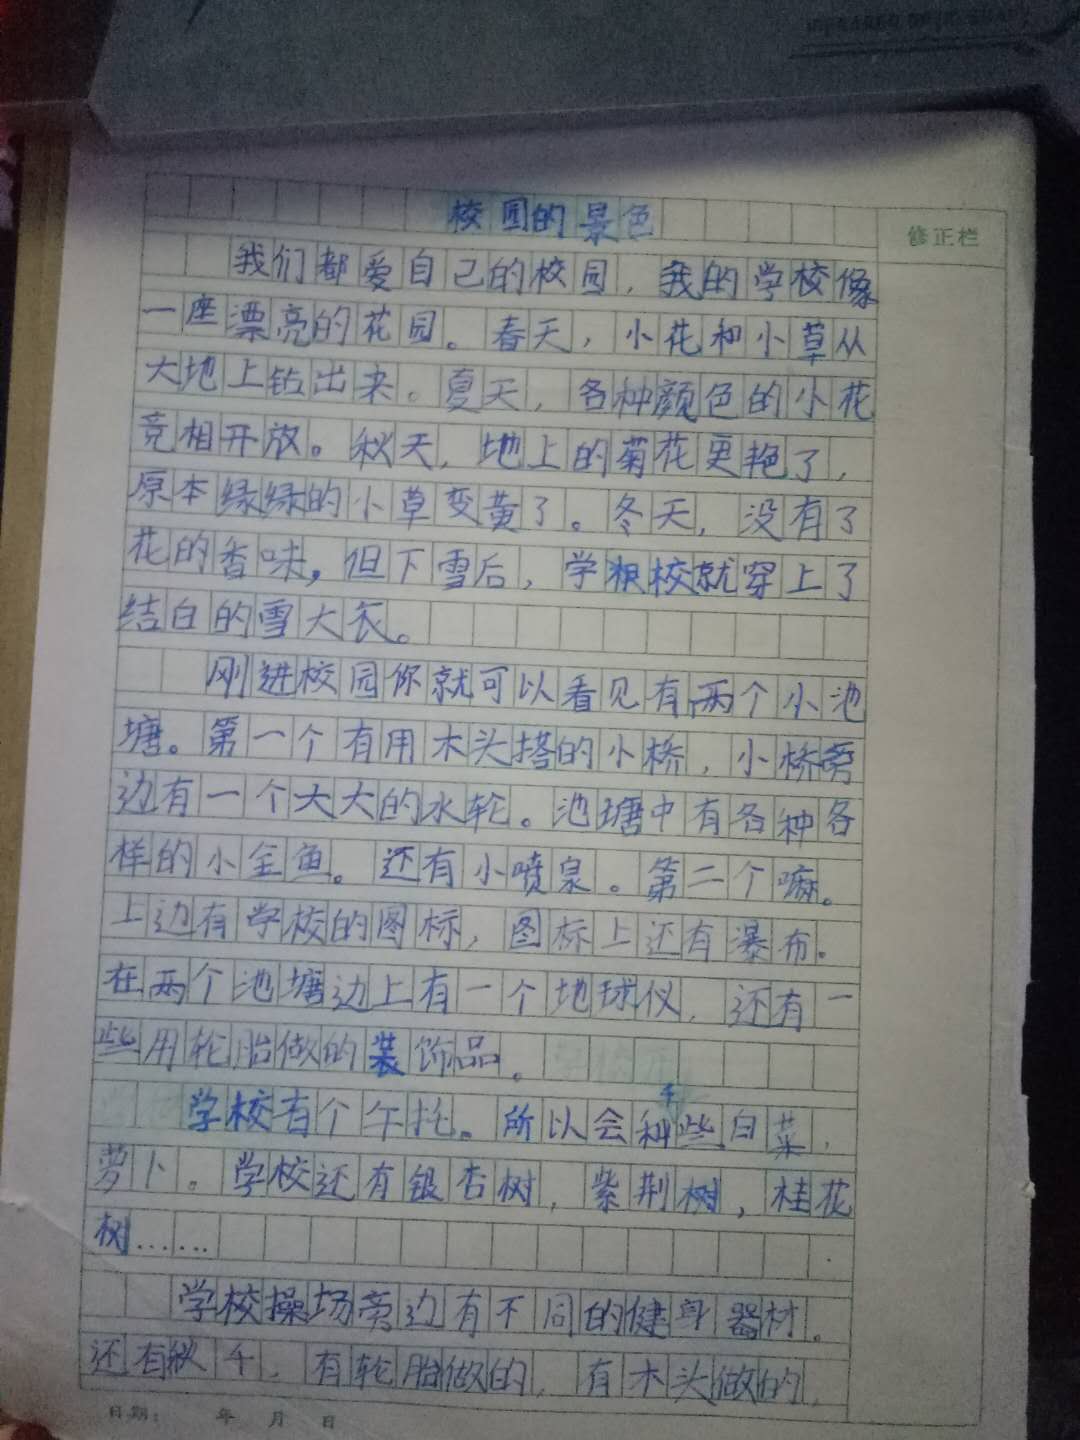 校园的景色
修正栏
我们都爱自己的校园，我的学校像
一座漂亮的花园。春天，小花和小草从
大地上钻出来。夏天，各种颜色的小花
竞相开放。秋天，地上的菊花更艳了，
原本绿绿的小草变黄了。冬天，没有了
花的香味，但下雪后，学校就穿上了
结白的雪大衣。
刚进校园你就可以看见有两个小池
塘。第一个有用木头搭的小桥，小桥旁
边有一个大大的水轮。池塘中有各种各
样的小金鱼。还有小喷泉。第二个嘛。
上边有学校的图标，图标上还有瀑布。
在两个池塘边上有一个地球仪，还有一
些用轮胎做的装饰品。
学校有个午托。所以会种些白菜，
萝卜。学校还有银杏树，紫荆树，桂花
树……
学校操场旁边有不同的健身器材。
还有秋千，有轮胎做的，有木头做的，
日期： 年 月 日